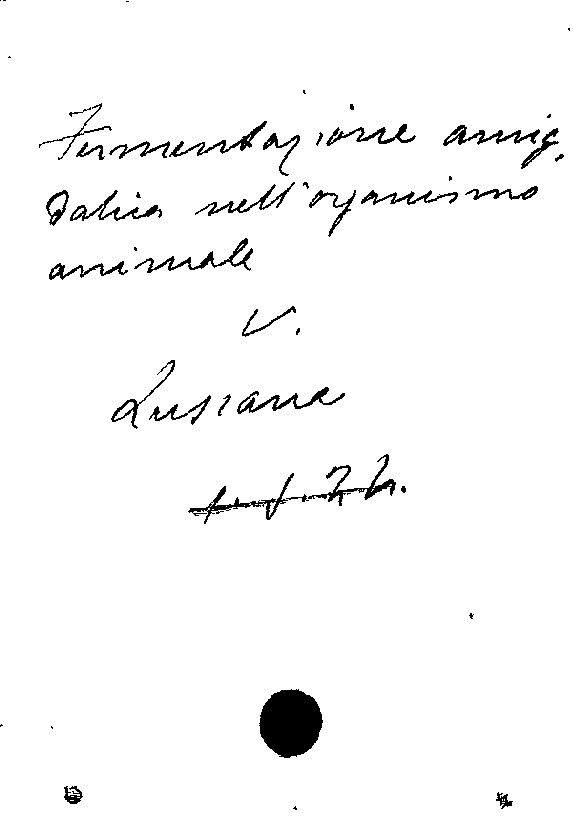 Fermentazione amig,
dalica nell'organismo
animale
V.
Lussana